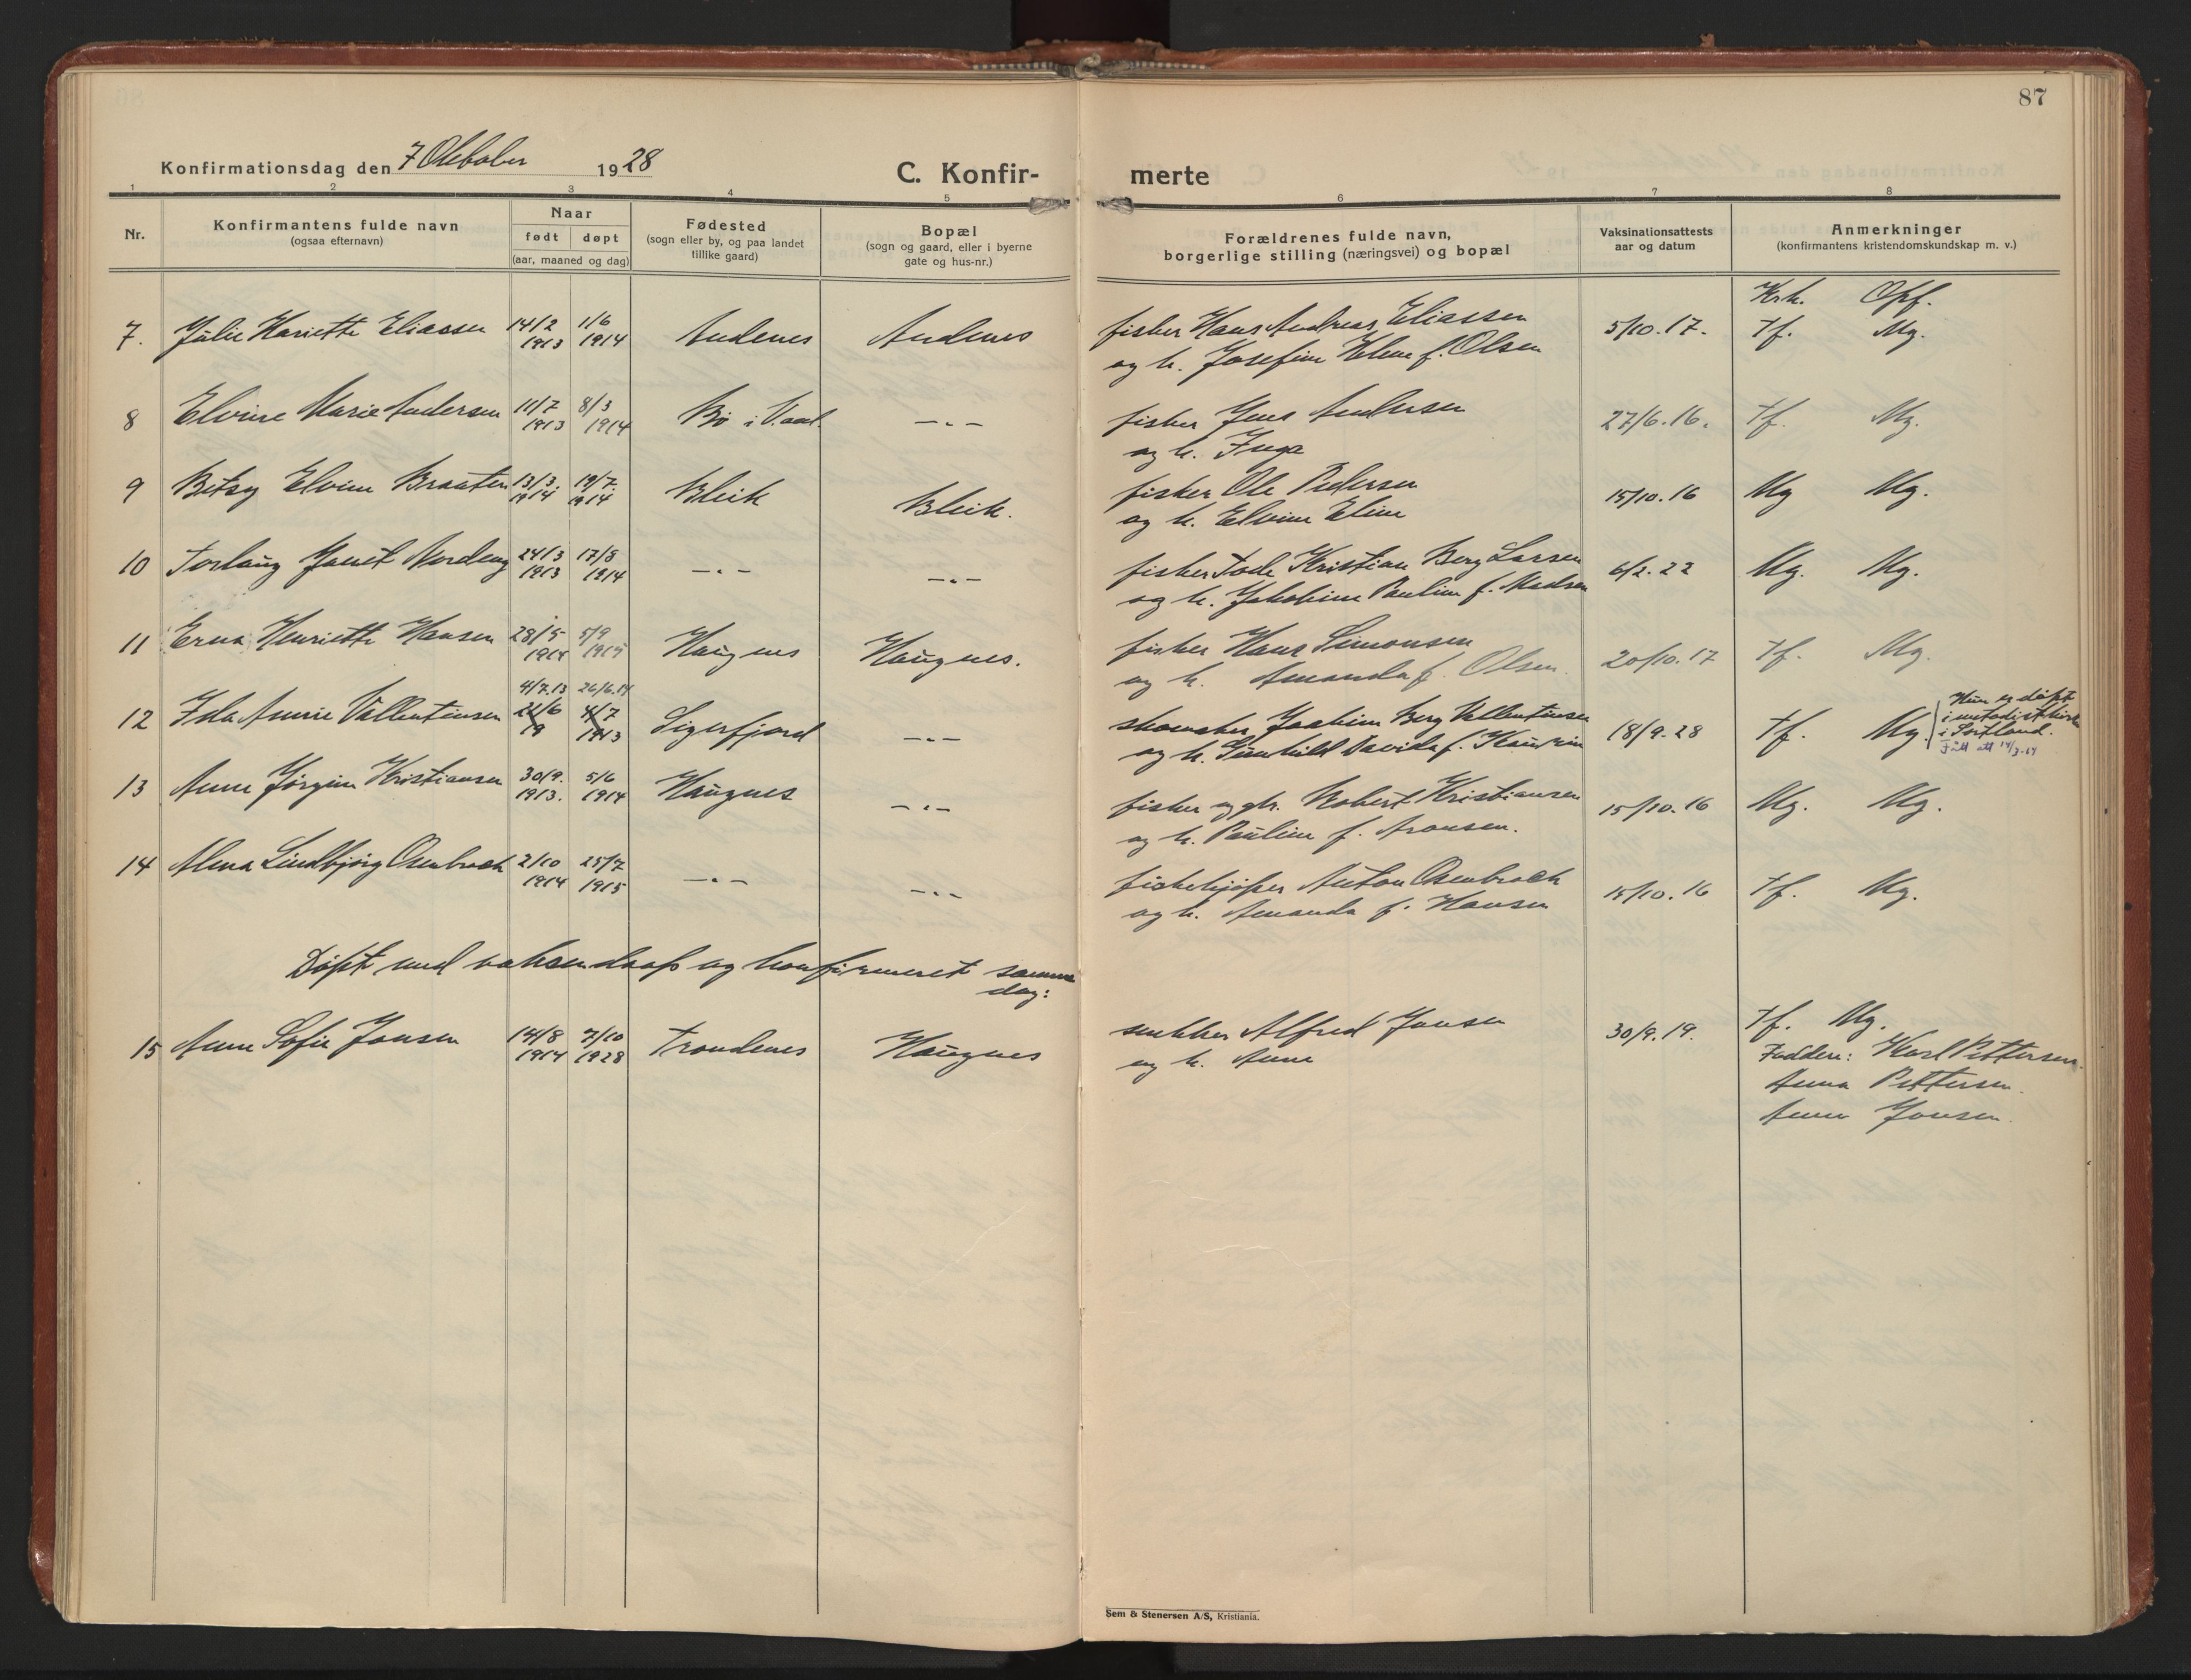 87
Konfirmationsdag den 7 Oktober 1928
C. Konfir- merte
1 2 3 4 5 6 7 8
Nr.
Konfirmantens fulde navn
(ogsaa efternavn)
Naar
født døpt
(aar, maaned og dag)
Fødested
(sogn eller by, og paa landet
tillike gaard)
Bopæl
(sogn og gaard, eller i byerne
gate og hus-nr.)
Forældrenes fulde navn,
borgerlige stilling (næringsvei) og bopæl
Vaksinationsattests
aar og datum
Anmerkninger
(konfirmantens kristendomskundskap m. v.)
Krk. Opf.
7. Julie Hariette Eliassen 14/2 1/6 Andenes Andenes fisker Hans Andreas Eliassen 5/10.17. Tf. Mg.
1913 1914 og h. Josefine Helene f. Olsen
8 Elvine Marie Andersen 11/7 8/3 Bø i V.aal. —.— fisker Jens Andersen 27/6.16. Tf. Mg.
1913 1914 og h. Inga
9 Betsy Elvine Braaten 13/3. 19/7. Bleik Bleik. fisker Ole Pedersen 15/10.16 Mg Mg.
1914 1914 og h. Elvine Eline
10 Torlaug Nordeng 24/3 17/8 —.— —.— fisker Tode Kristian Berg Larsen 6/2.22 Mg. Mg.
1913 1914 og h. Jakobine Pauline f. Madsen
11 Erna Henriette Hansen 28/5 5/9 Haugnes Haugnes. fisker Hans Simonsen 20/10.17 Tf. Mg.
1914 1915 og h. Amanda f. Olsen.
4/7.13 26/6.14
12 Ida Annie Vallentinsen 26/6 4/7 Sigerfjord —.— skomaker Joakim Berg Vallentinsen 18/9.28 Tf. Mg.
19 1913 og h. Gunhild Davida f.
Hun er døpt
i metodistkirke
i Sortland.
13 Anne Jørgine Kristiansen 30/9. 5/6 Haugnes —.— fisker og gbr. Robert Kristiansen 15/10.16 Mg. Mg.
1913. 1914 og h. Pauline f. Aronsen.
14 Alma Lindbjørg Osenbroch 2/10 25/7 —.— —.— fiskekjøper Anton Osenbroch 15/10.16 Tf. Mg.
1914 1915 og h. Amanda f. Hansen
Døpt med voksendaap og konfirmeret samme
dag:
15 Anne Sofie Jonsen 14/8 7/10 Trondenes Haugnes snekker Alfred Jonsen 30/9.19. Tf. Mg.
1914 1928 og h. Anne
Faddere: Karl Pettersen.
Anna Pettersen.
Anne Jonsen.
Sem & Stenersen A/S, Kristiania.